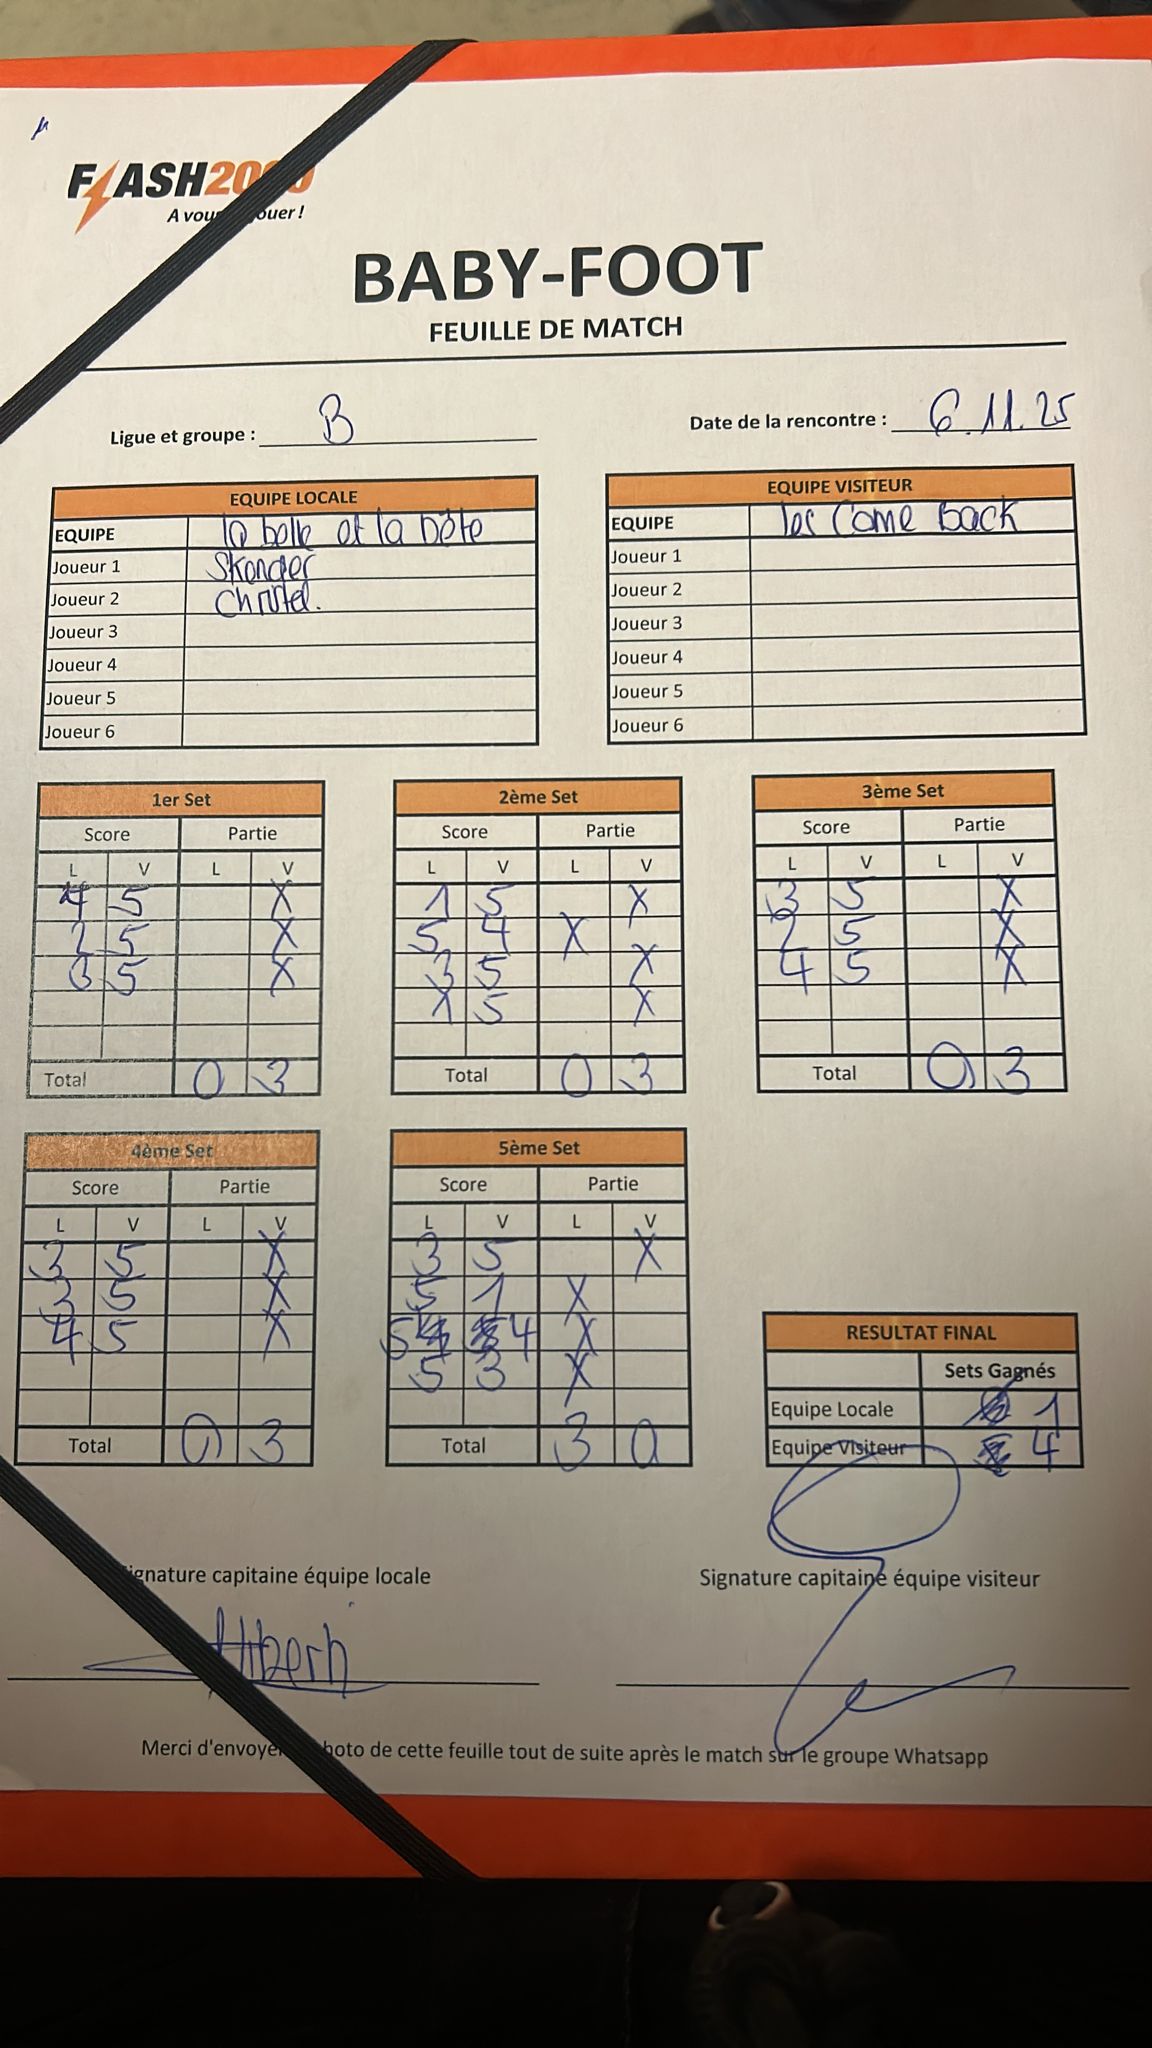 FLASH2000
A vous jouer !
BABY-FOOT
FEUILLE DE MATCH
Ligue et groupe : B
Date de la rencontre : 6.11.25
EQUIPE LOCALE
EQUIPE la belle et la bête
Joueur 1 Skander
Joueur 2 Christel.
Joueur 3
Joueur 4
Joueur 5
Joueur 6
EQUIPE VISITEUR
EQUIPE les Come Back
Joueur 1
Joueur 2
Joueur 3
Joueur 4
Joueur 5
Joueur 6
1er Set
Score Partie
L V L V
4 5 X
2 5 X
3 5 X
Total 0 3
2ème Set
Score Partie
L V L V
1 5 X
5 4 X
3 5 X
X 5 X
Total 0 3
3ème Set
Score Partie
L V L V
3 5 X
2 5 X
4 5 X
Total 0 3
4ème Set
Score Partie
L V L V
3 5 X
3 5 X
4 5 X
Total 0 3
5ème Set
Score Partie
L V L V
3 5 X
5 1 X
5 4 X
5 3 X
Total 3 0
RESULTAT FINAL
Sets Gagnés
Equipe Locale 1
Equipe Visiteur 4
Signature capitaine équipe locale
Signature capitaine équipe visiteur
Merci d'envoyer photo de cette feuille tout de suite après le match sur le groupe Whatsapp